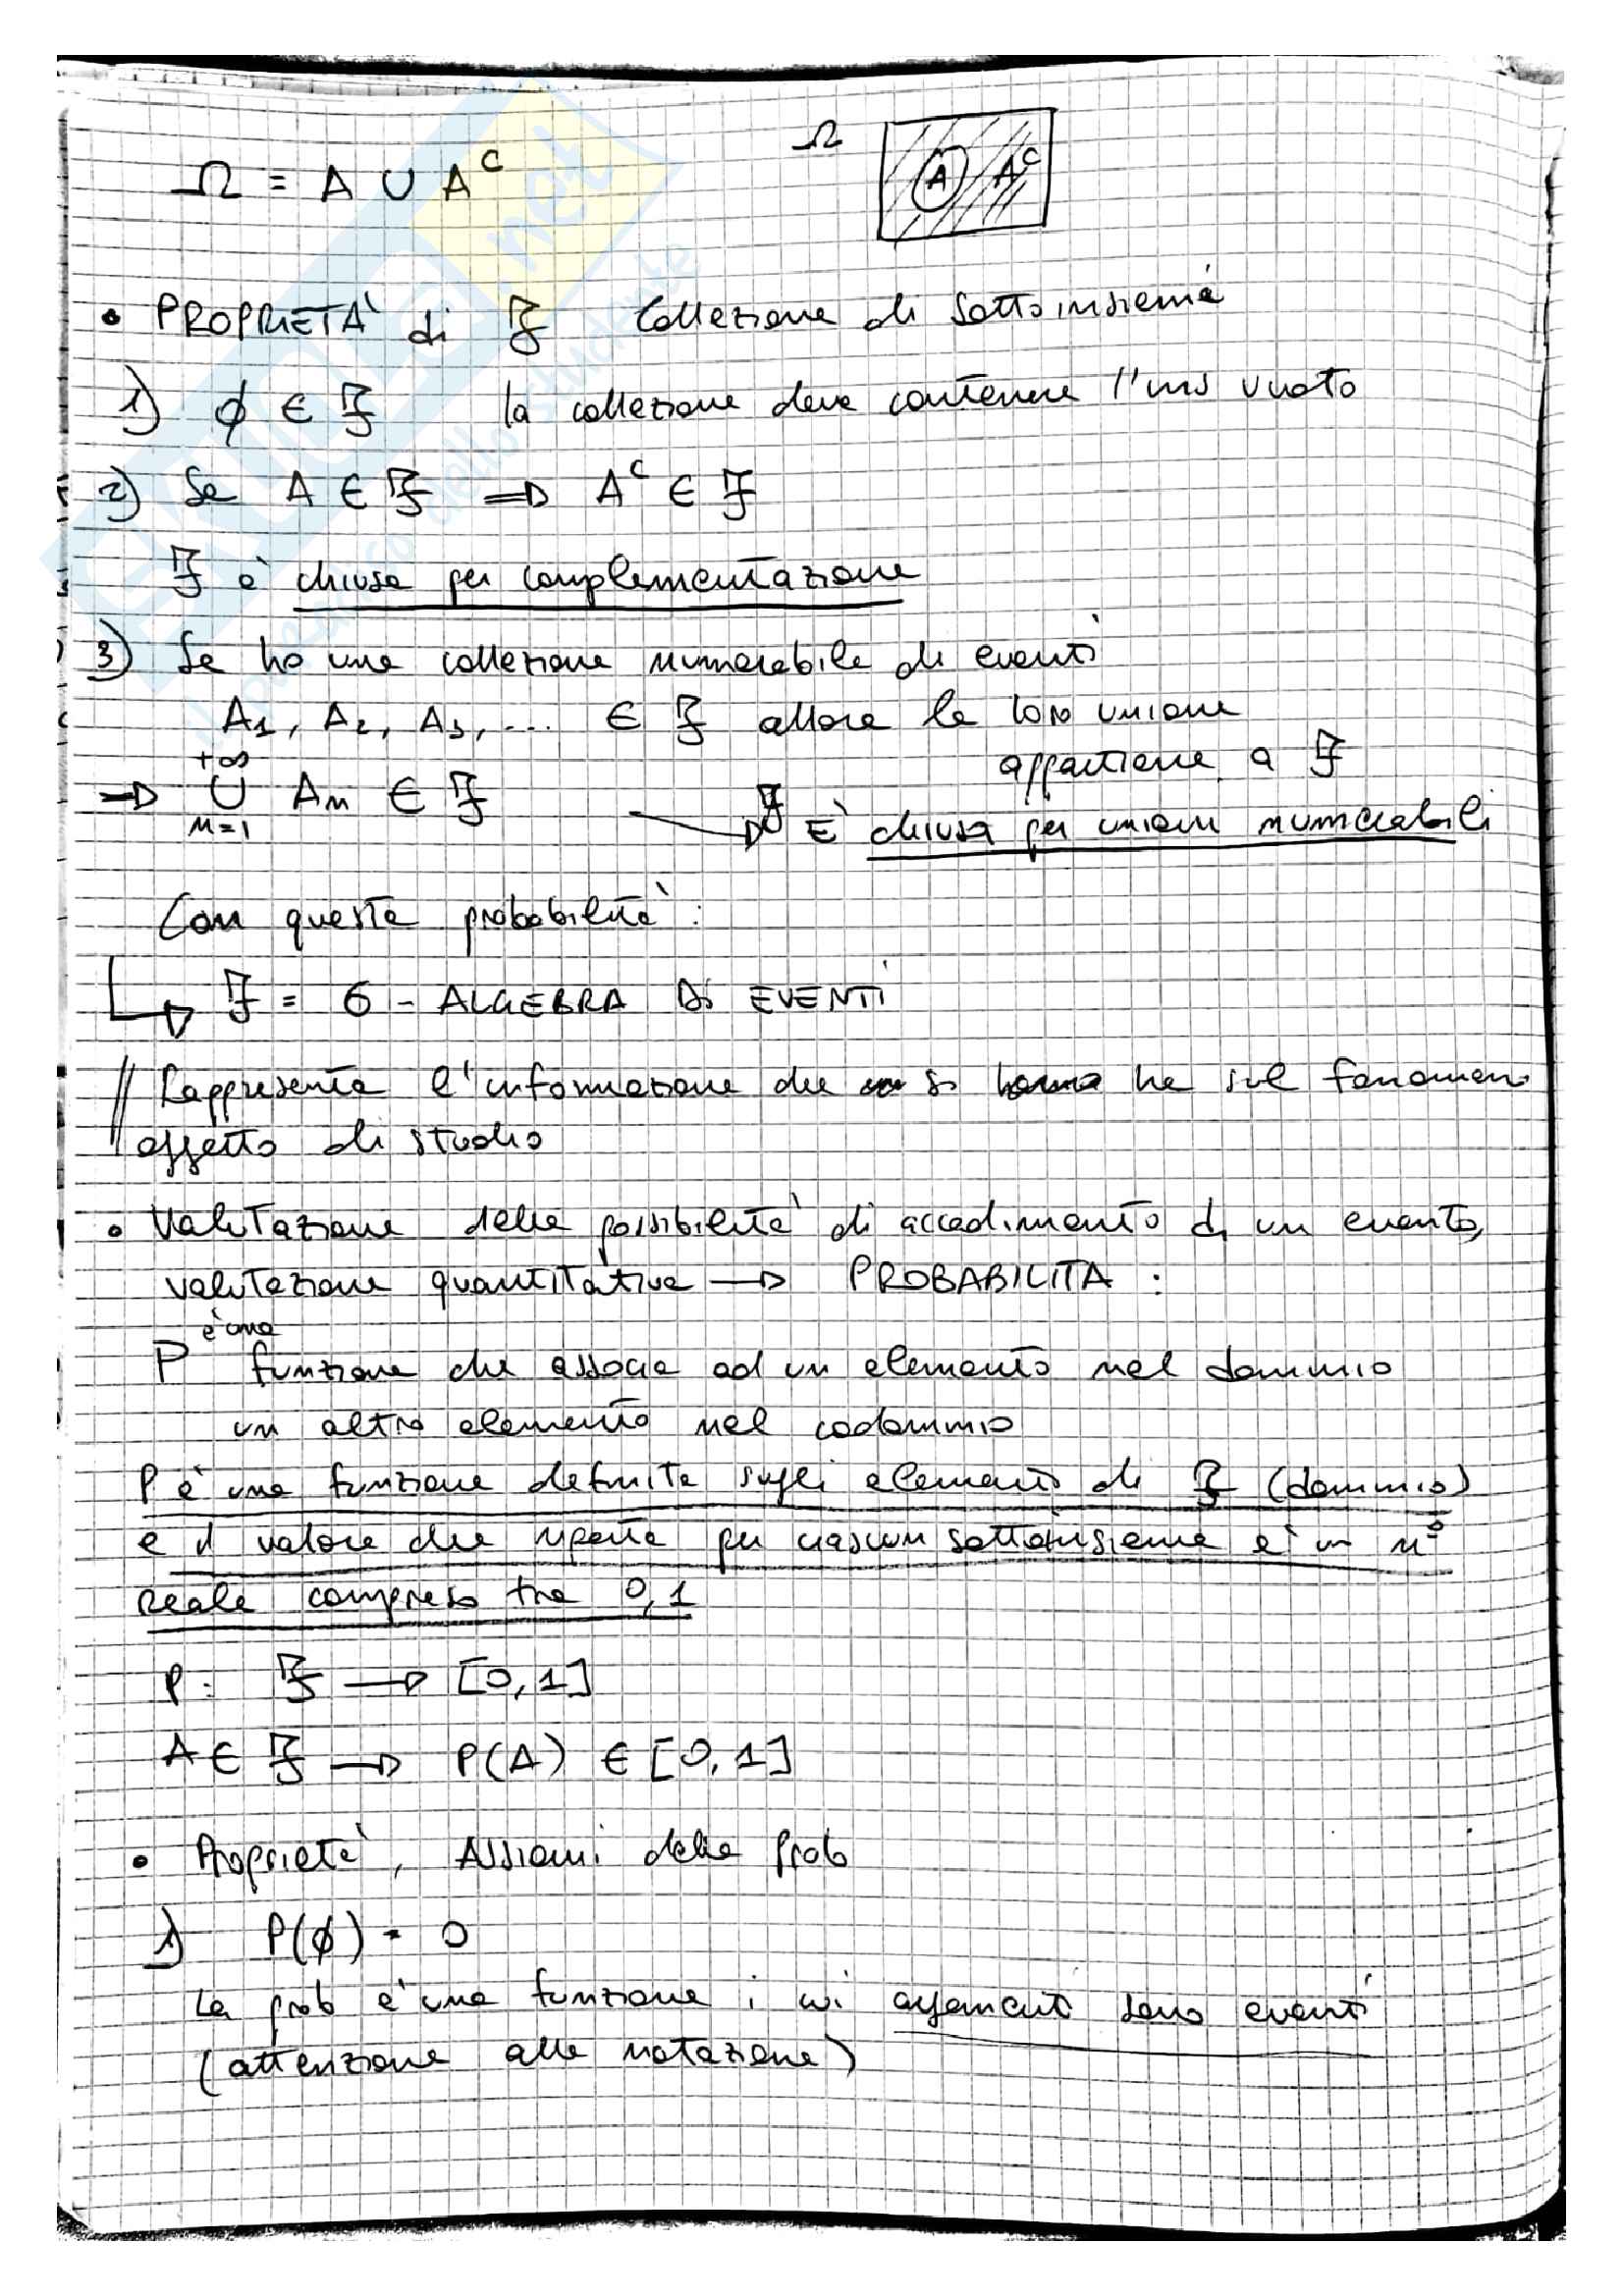 Ω = A ∪ Aᶜ
Ω
A Aᶜ
• PROPRIETÀ di ℱ Collezione di sottoinsiemi
1) ∅ ∈ ℱ la collezione deve contenere l'ins vuoto
2) Se A ∈ ℱ ⇒ Aᶜ ∈ ℱ
ℱ è chiusa per complementazione
3) Se ho una collezione numerabile di eventi
A₁, A₂, A₃, ... ∈ ℱ allora la loro unione
appartiene a ℱ
⇒ ⋃_{n=1}^{+∞} Aₙ ∈ ℱ → ℱ È chiusa per unioni numerabili
Con queste probabilità:
↳ ℱ = σ - ALGEBRA Di EVENTI
Rappresenta l'informazione che si ha sul fenomeno
oggetto di studio
• Valutazione delle possibilità di accadimento di un evento,
valutazione quantitativa → PROBABILITA :
P è una funzione che associa ad un elemento nel dominio
un altro elemento nel codominio
P è una funzione definita sugli elementi di ℱ (dominio)
e il valore che riporta per ciascun sottoinsieme è un n°
reale compreso tra 0,1
P: ℱ → [0,1]
A ∈ ℱ → P(A) ∈ [0,1]
• Proprietà, Assiomi della prob
1) P(∅) = 0
La prob è una funzione i cui argomenti sono eventi
(attenzione alla notazione)
SKUOLA.net